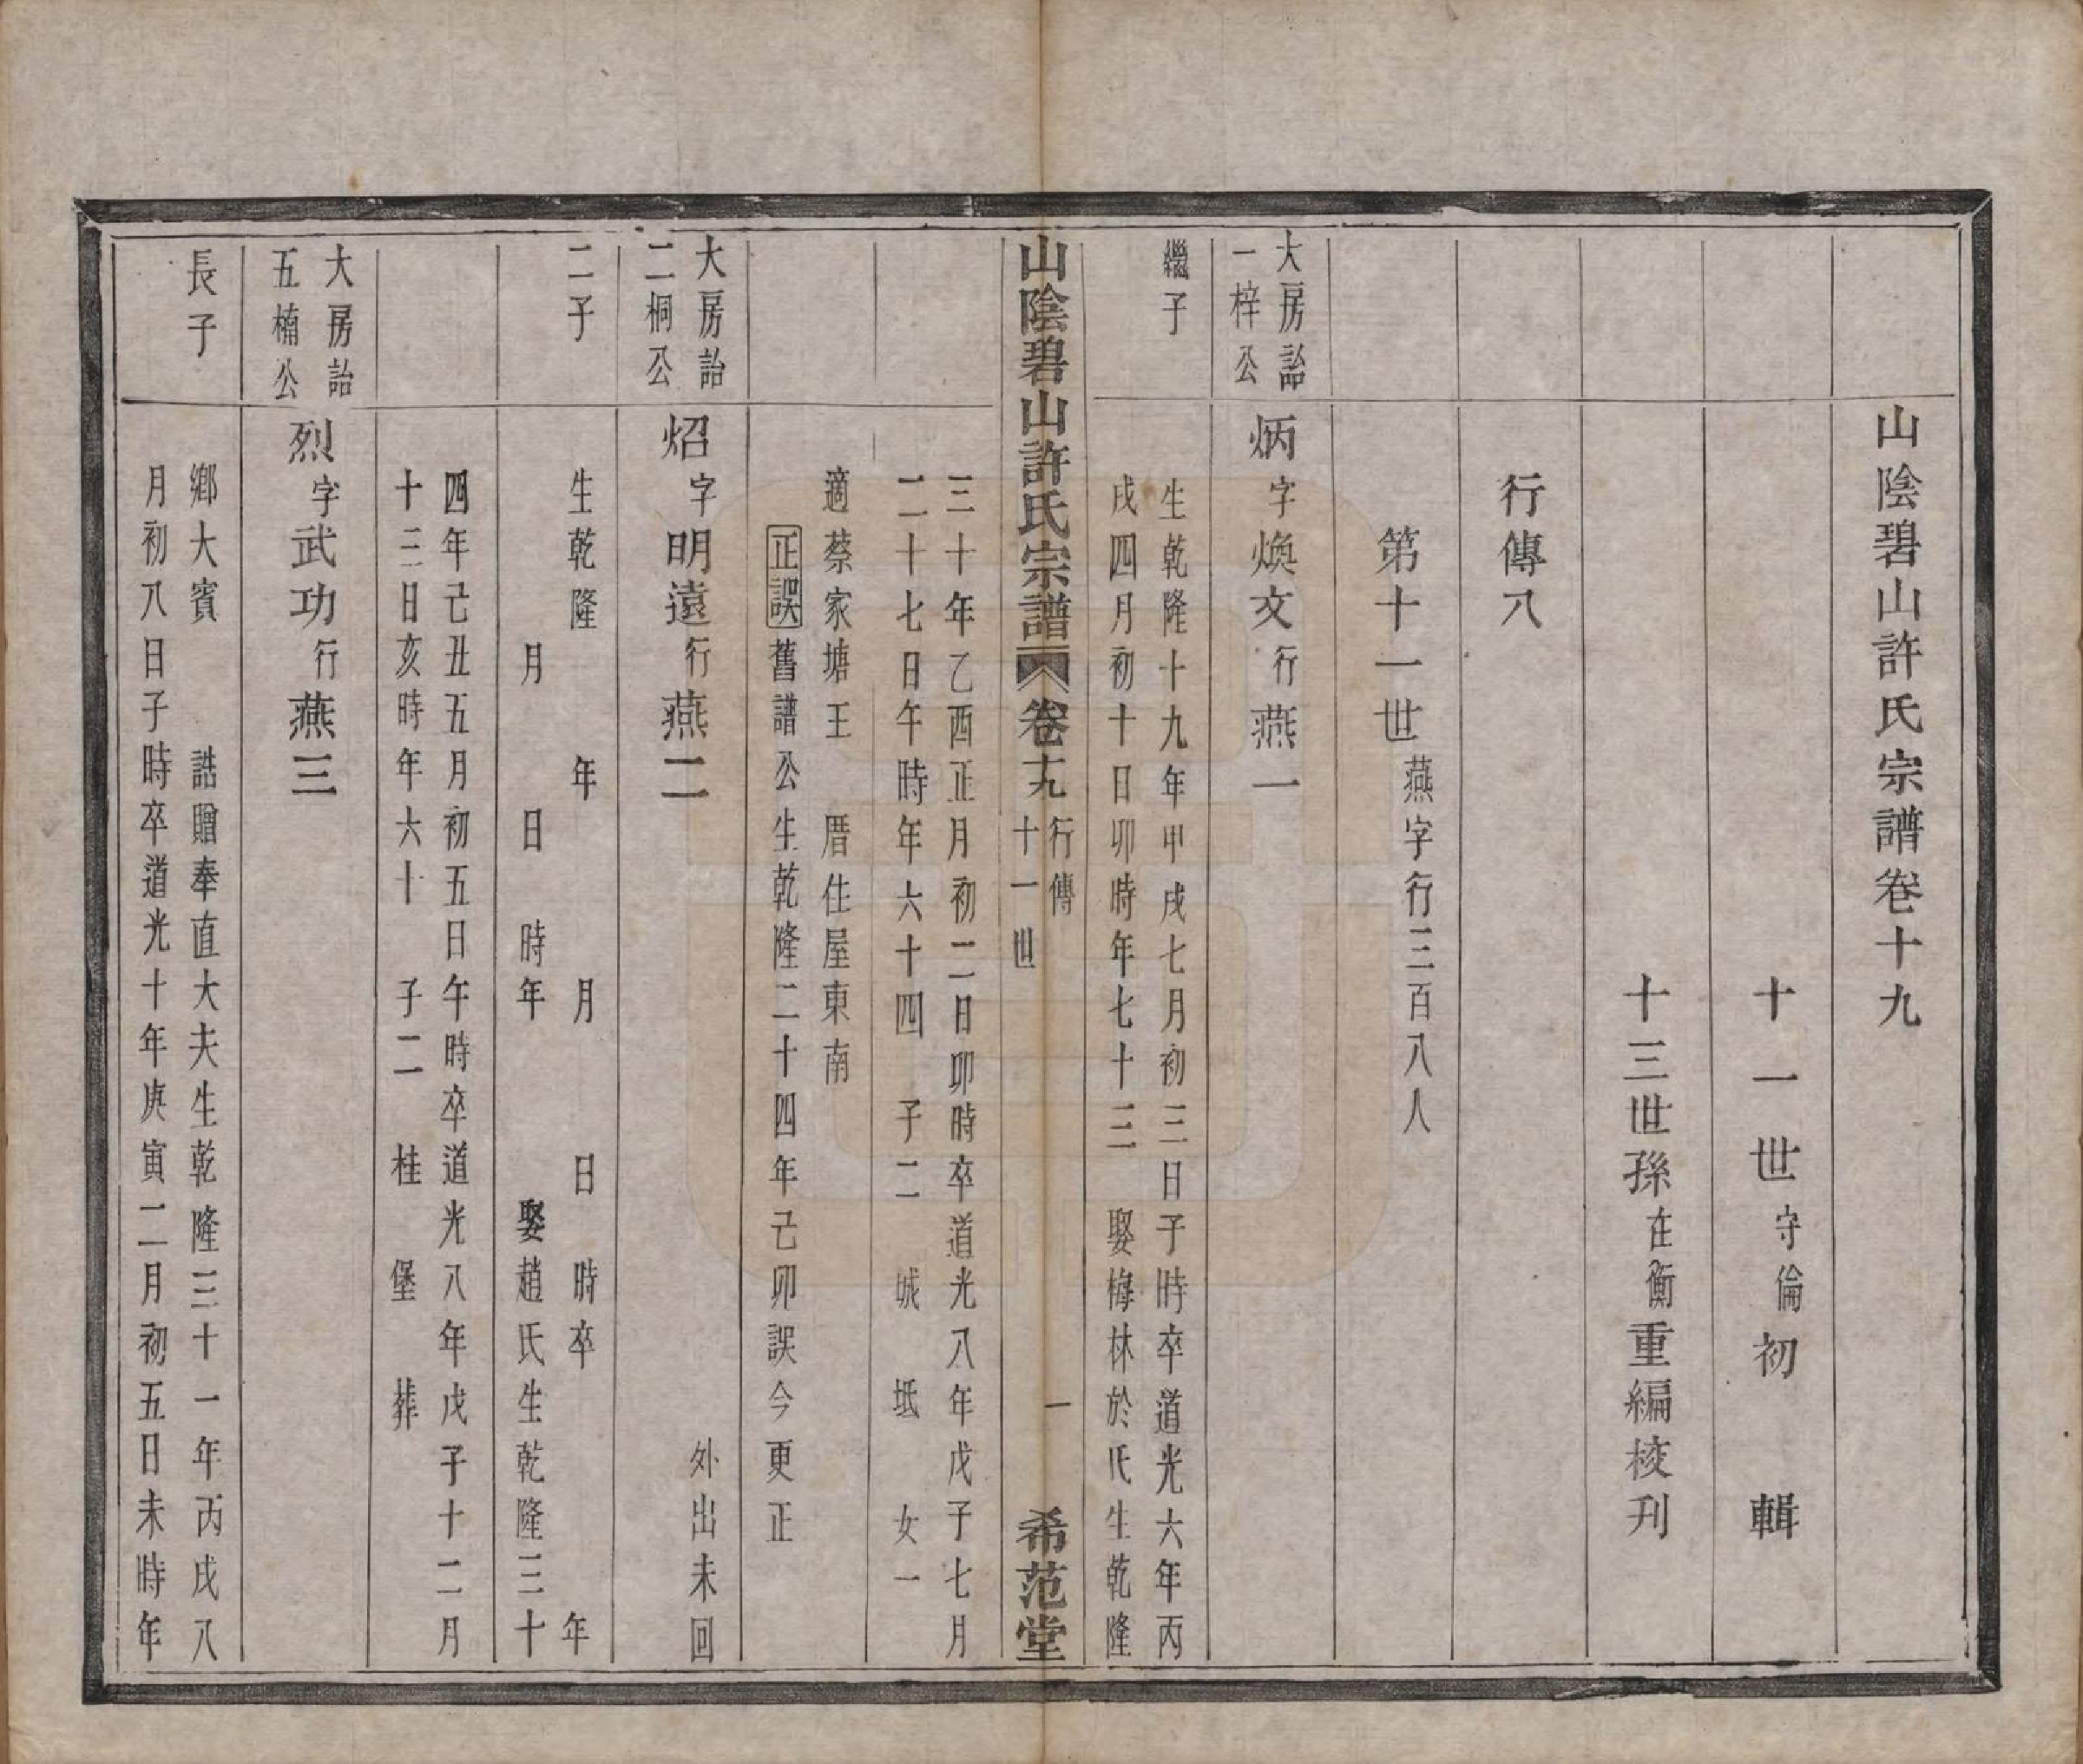 山陰碧山許氏宗譜卷十九
十一世守倫初輯
十三世孫在衡重編校刊
行傳八
第十一世燕字行三百八人
大房詒
一梓公
炳字煥文行燕一
繼子
生乾隆十九年甲戌七月初三日子時卒道光六年丙
戌四月初十日卯時年七十三　娶梅林於氏生乾隆
山陰碧山許氏宗譜　卷十九　行傳　十一世　一　希范堂
三十年乙酉正月初二日卯時卒道光八年戊子七月
二十七日午時年六十四　子二　城　坻　女一
適蔡家塘王　厝住屋東南
正誤舊譜公生乾隆二十四年己卯誤今更正
大房詒
二桐公
炤字明遠行燕二　外出未回
二子
生乾隆　年　月　日　時卒　年
月　日　時年　娶趙氏生乾隆三十
四年己丑五月初五日午時卒道光八年戊子十二月
十三日亥時年六十　子二　桂　堡　葬
大房詒
五楠公
烈字武功行燕三
長子
鄉大賓　誥贈奉直大夫生乾隆三十一年丙戌八
月初八日子時卒道光十年庚寅二月初五日未時年